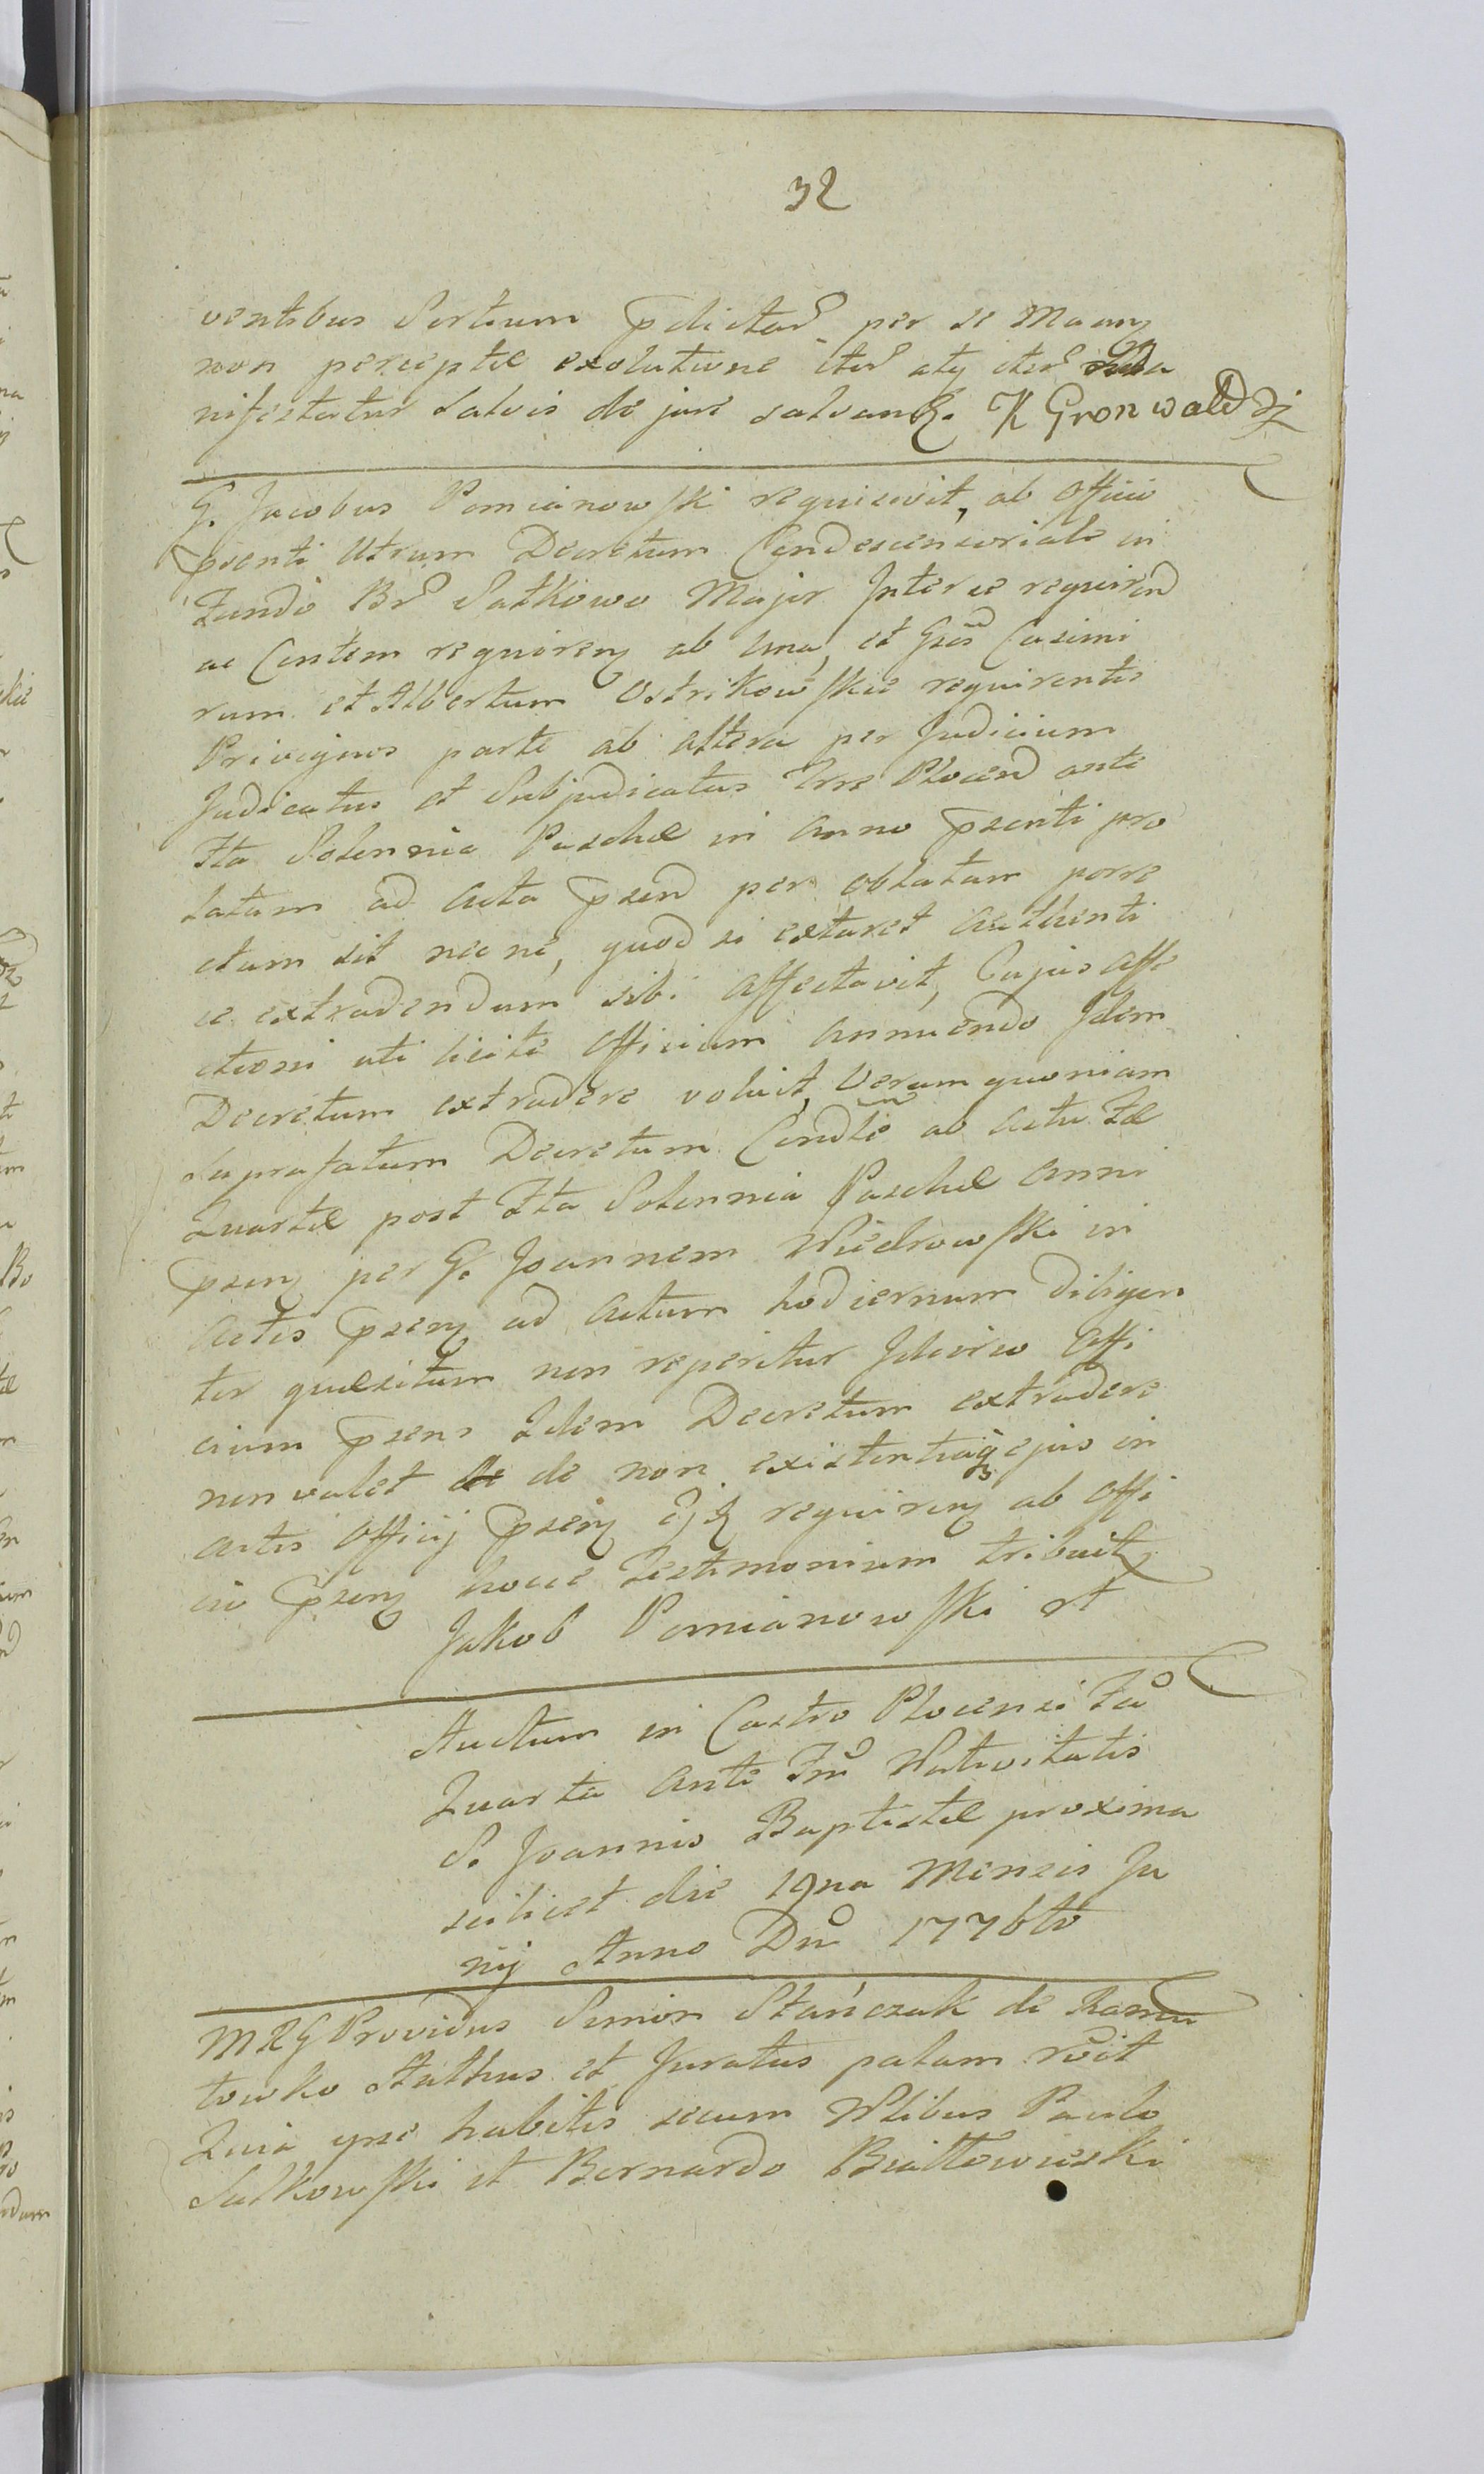 32
ventibus Sortium pdictar per se Maanz
non perceptæ exolutione iter atq iter ma
nifestatur salvis de jure salvandis. K Gronwald
G. Jacobus Pomianowski requisivit, ab Officio
psenti Utrum Decretum Condescensoriale in
Fundo Br Satkowo Major Inter se requirend
ac Contem requirenz ab una, et Gsos Casimi
rum et Albertum Ostrikowskie requirentis
Privignos parte ab altera per Judicium
Judicatus et Subjudicatus Trre Plocens ante
Fta Solennia Paschæ in Anno psenti pro
latum ad Acta psend per oblatam porre
ctum sit nec ne, quod si extaret Authenti
ce extradendum sibi Affectavit, Cujus Affe
ctioni uti licite Officium Annuendo Idem
Decretum extradere voluit, Verum quoniam
Suprafatum Decretum Condle ab Actu Fæ
Quartæ post Fta Solennia Paschæ Anni
psenz per G. Joannem Wiedrowski in
Actis psenz ad Actum hodiernum Diligen
ter quæsitum non reperitur Idcirco Offi
cium psens Idem Decretum extradere
non valet de non existentiaq ejus in
Actis Officij psenz requirenz ab Offi
cio psenz hocce Testimonium tribuit
Jakob Pomianowski
Actum in Castro Plocensi Fa
Quarta Ante Fm Nativitatis
S. Joannis Baptistæ proxima
scilicet die 19na Mensis Ju
nij Anno Dni 1776to
MRG Providus Simon Stańczak de
towko Authus et Juratus palam rcit
Quia ipse habitis secum Nlibus Paulo
Sulkowski et Bernardo Białłowieski